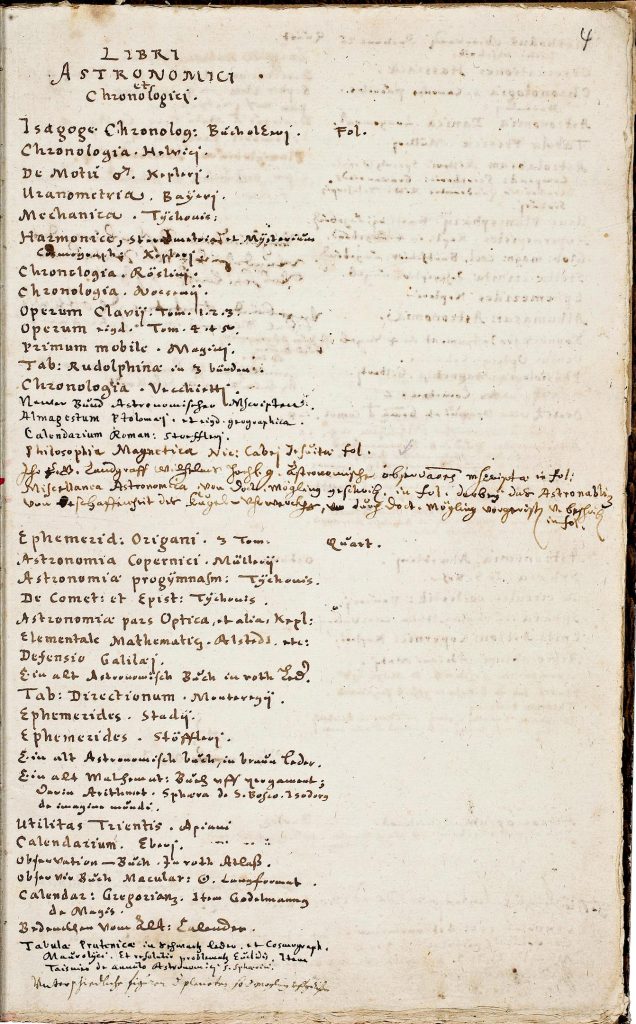 4
LIBRI
ASTRONOMICI
et
Chronologici.
Isagoge Chronolog: Bücholtzerj. Fol.
Chronologia. Helvicj.
De Motu ♂. Keplerj.
Uranometria. Bayerj.
Mechanica. Tÿchonis.
Harmonice, Stereometria, et Mÿsterium
Cosmographi: Keplerj
Chronologia. Röslinj.
Chronologia.
Operum Clavij. Tom. 1. 2. 3.
Operum eiusd. Tom. 4. et 5.
Primum mobile. Maginj.
Tab: Rudolphinæ in 3 bünden.
Chronologia. Vecchiettj.
Newer Bünd Astronomischer Mscripten.
Almagestum Ptolomæj. et eiusd. geographica.
Calendarium Roman: Stoefflerj.
Philosophia Magnetica Nic: Cabej Jesuitæ fol.
Landgraff Wilhelms Astronomische observationes mscripta in fol:
Miscellanea Astronomica, von Doct. Mögling geschrieb. in fol. darbeÿ das
von beschaffenheit der durch Doct. Mögling
in fol.
Ephemerid: Origani. 3 Tom: Quart.
Astronomia Copernici. Müllerij.
Astronomiæ progÿmnasm: Tÿchonis.
De Comet: et Epist: Tÿchonis.
Astronomiæ pars Optica, et alia, Kepl:
Elementale Mathematic. Alstedj. etc:
Defensio Galilæj.
Ein alt Astronomisch Büch in roth Leder.
Tab: Directionum. Monteregij.
Ephemerides. Stadij.
Ephemerides. Stöfflerj.
Ein alt Astronomisch büch, in braun leder.
Ein alt Mathemat: Büch uff pergament;
Darin Arithmet. Sphæra de S. Bosco. Isodorus
de imagine mundi.
Utilitas Trientis. Apiani
Calendarium. Eberj.
Observation-Büch. In roth Atlaß.
Observir Büch Macular: ☉. Langformat.
Calendar: Gregorianz. Item Godelmannus
de Magis.
Bedencken vom Alt: Calender.
Tabulæ Prutenicæ in schwartz leder. et Cosmograph.
Maurolÿci. Et resolutio problematz Euclidis. Item
Taisnier de annulo Astronomicj S. Sphericj.
Unterschiedliche figuren